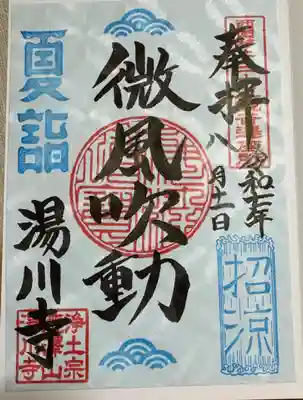 奉拝
令和七年
八月十一日
招涼
微風吹動
夏詣
湯川寺
浄土宗
湯川寺